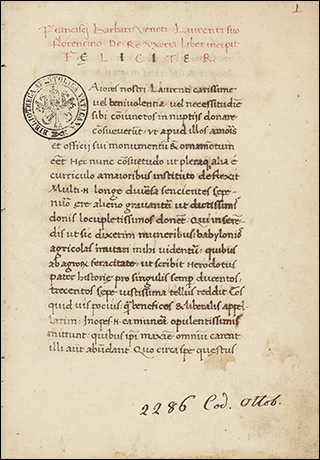 1
Francisci Barbari Veneti Laurenti suo
florentino De Re Vxoria liber incepit
FELICITER
BIBLIOTHECA APOSTOLICA VATICANA
Aiores nostri Laurenti carissime
uel beniuolentia uel necessitudine
sibi coniunctos in nuptijs donare
consueuerūt ut apud illos amoris
et officij sui monumentū & ornamentum
eēt Hec nunc consuetudo ut pleraq alia e
curriculo a maioribus instituto deflexit
Multi n longe diuersa sencientes sepe
ere alieno grauantur ut dictissimi
donis locupletissimos donēt Qui in
dis ut sic dixerim muneribus babylonios
agricolas imitari mihi uidentur quibus
ab agrorum feracitate ut scribit Herodotus
pater historie pro singulis semp ducentos
trecentos sepe iustissima tellus reddit Eos
quid uis pocius q beneficos & liberalis appel
larim Inopes n ea munera opulentissimis
mittunt quibus ipi maxie omniū carent
illi aūt abundant Quo circa spe questus
2286 Cod. Ottob.